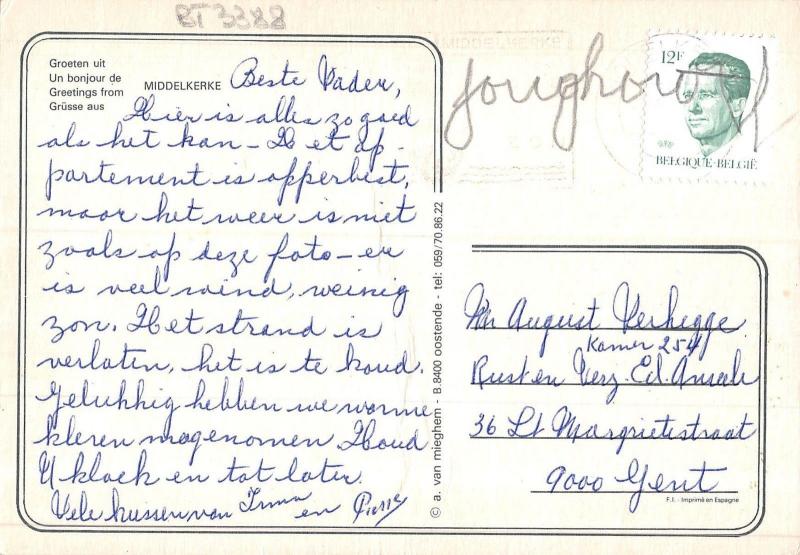 BT 3388
Groeten uit
Un bonjour de
Greetings from
Grüsse aus
MIDDELKERKE
Beste Vader,
Hier is alles zo goed
als het kan - Het ap-
partement is opperbest,
maar het weer is niet
zoals op deze foto - er
is veel wind, weinig
zon. Het strand is
verlaten, het is te koud.
Gelukkig hebben we warme
kleren meegenomen Houd
U kloek en tot later.
Vele kussen van Irma en Pierre
© a. van mieghem - B.8400 oostende - tel: 059/70.86.22
MIDDELKERKE
12F
BELGIQUE-BELGIË
Mr August Verhegge
Kamer 254
Rust en Verz. Ed. Anseele
36 St Margrietestraat
9000 Gent
F.I. - Imprimé en Espagne